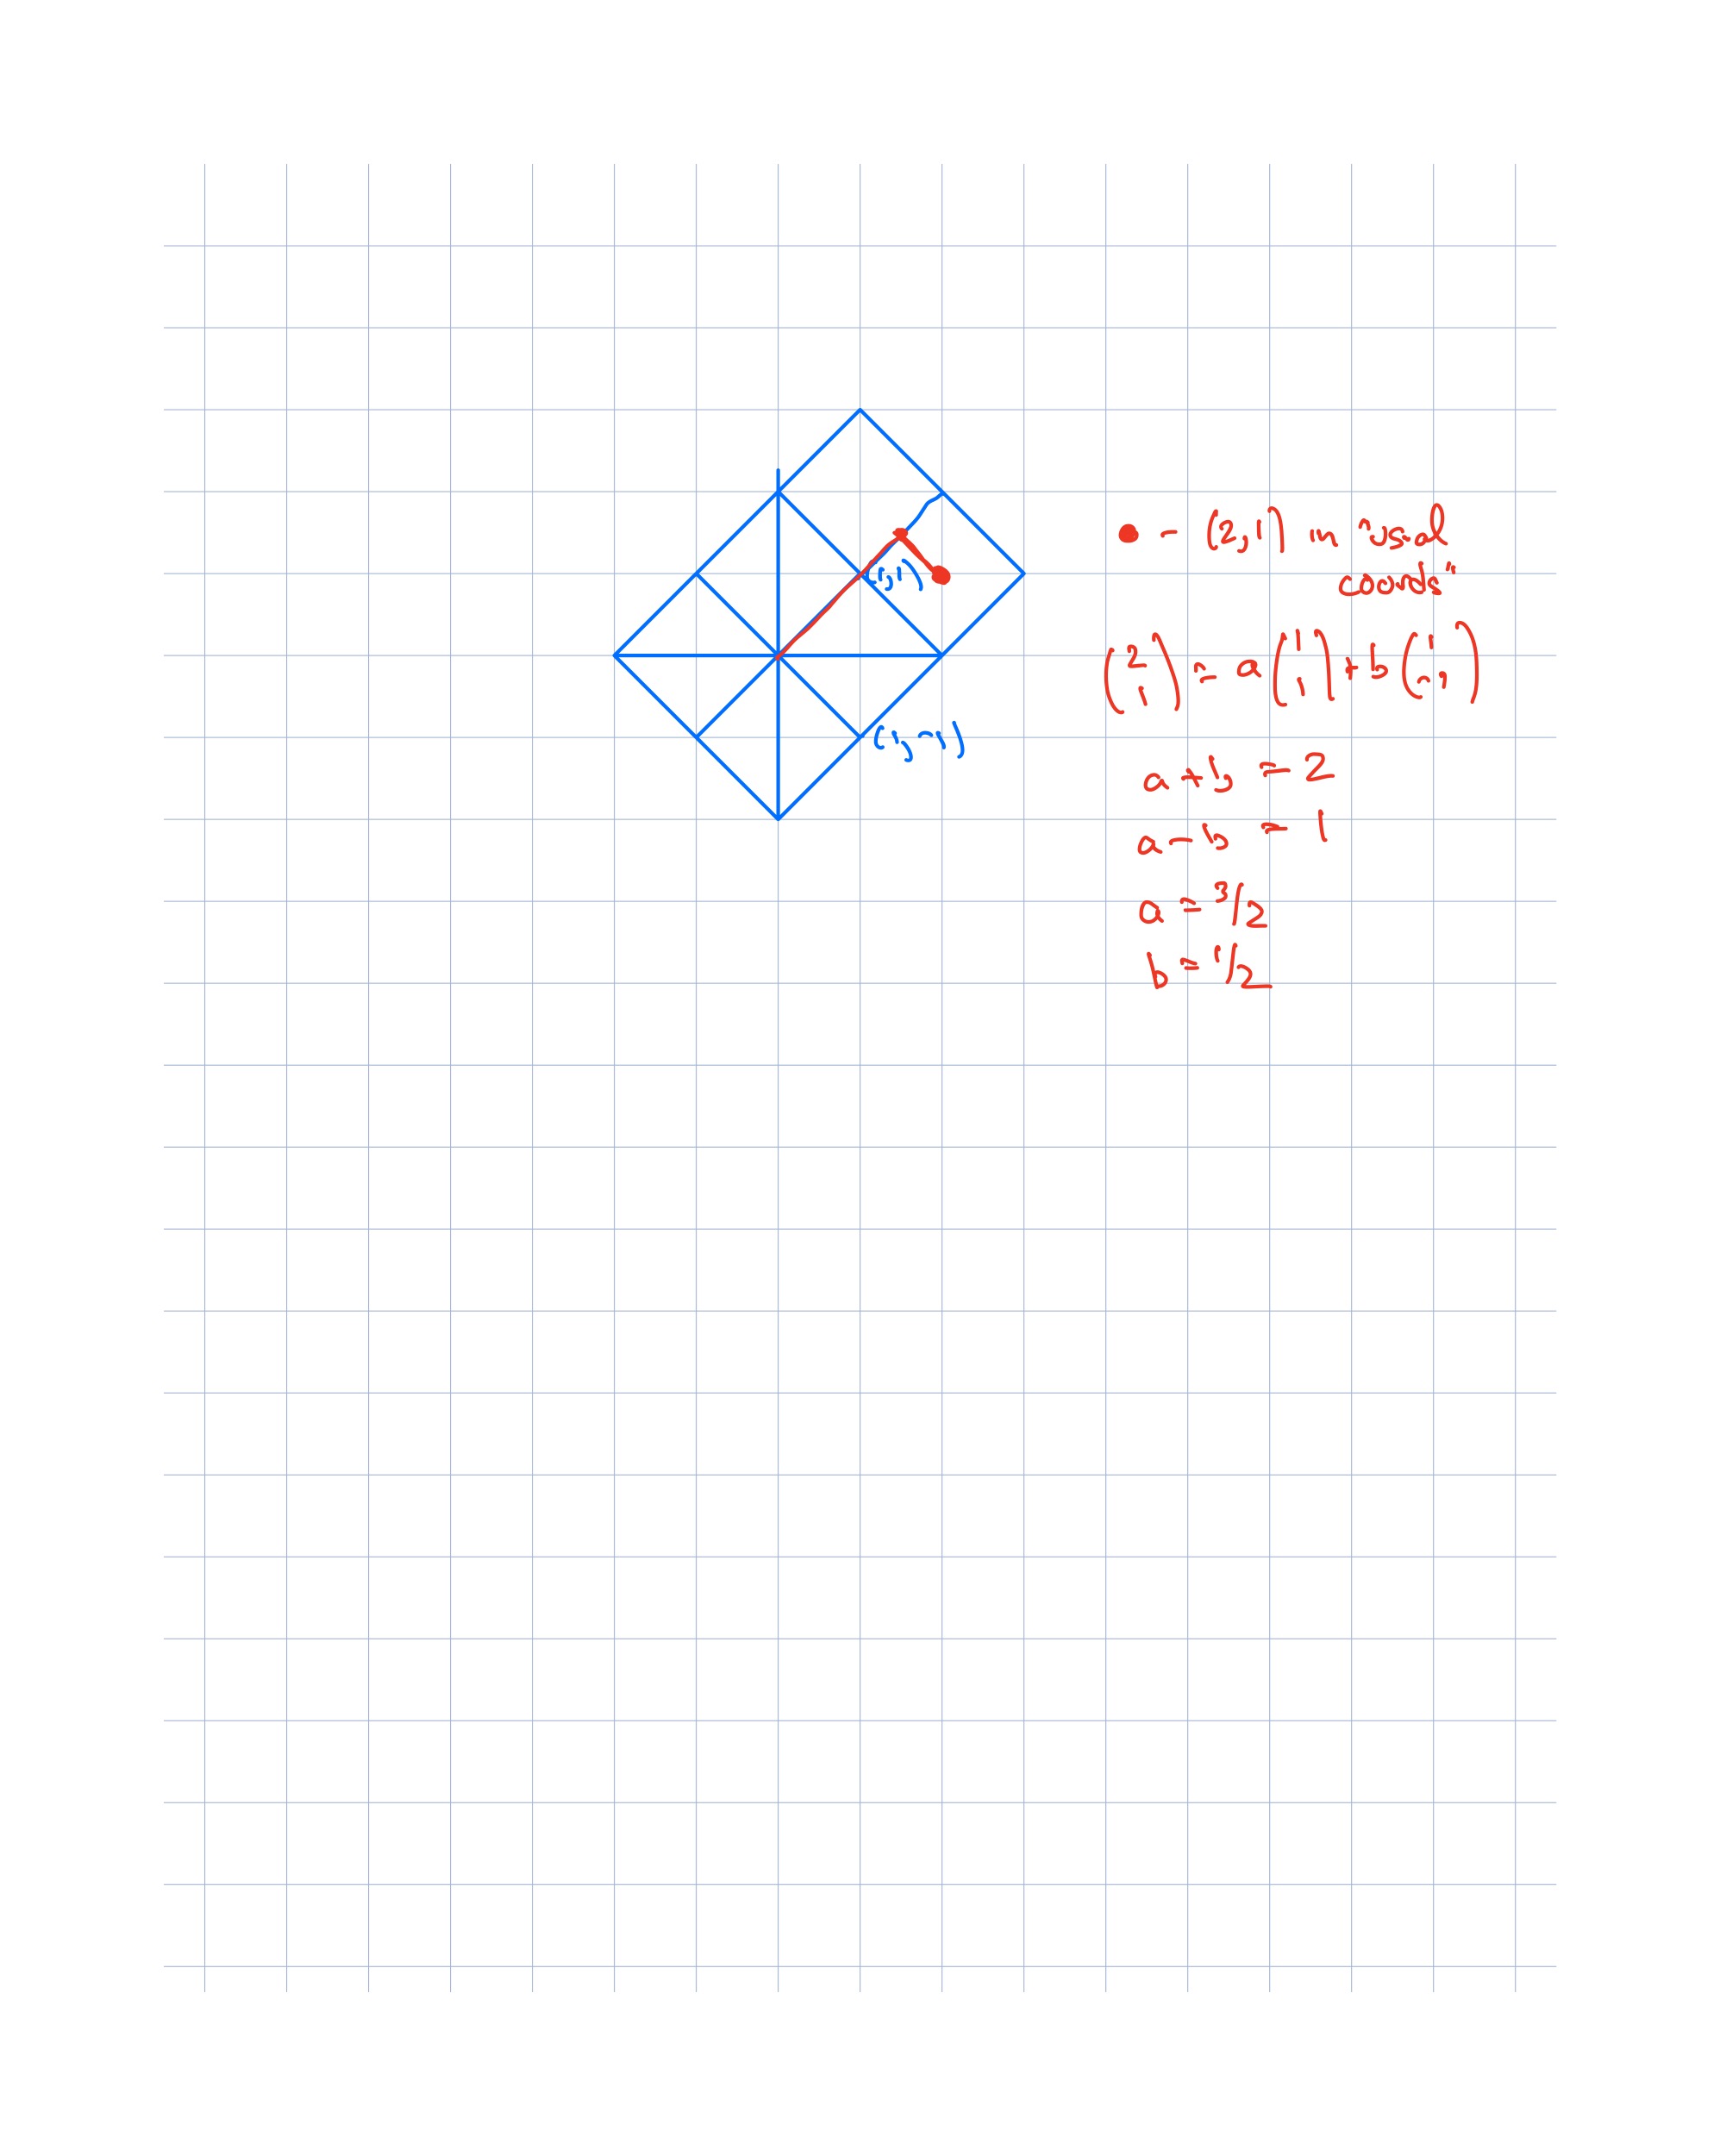 (1,1)
(1,-1)
• - (2,1) in "usual
coords"
(2 1) = a(1 1) + b(1 -1)
a+b = 2
a-b = 1
a = 3/2
b = 1/2